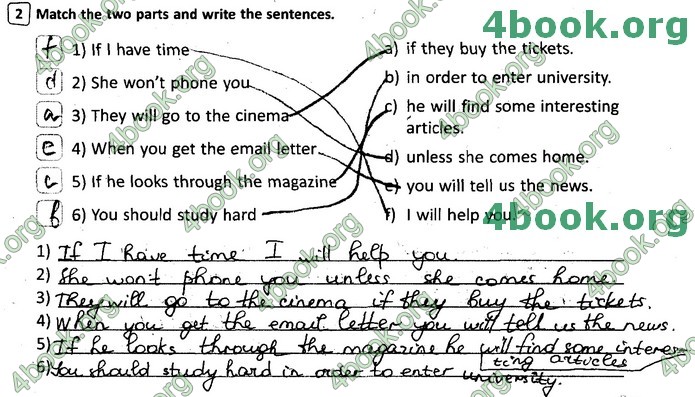 2 Match the two parts and write the sentences.
4book.org
f 1) If I have time
a) if they buy the tickets.
d 2) She won't phone you
b) in order to enter university.
a 3) They will go to the cinema
c) he will find some interesting
articles.
e 4) When you get the email letter
d) unless she comes home.
c 5) If he looks through the magazine
e) you will tell us the news.
b 6) You should study hard
f) I will help you.
4book.org
1) If I have time I will help you.
2) She won't phone you unless she comes home
3) They will go to the cinema if they buy the tickets.
4) When you get the email letter you will tell us the news.
5) If he looks through the magazine he will find some interes
ting articles
6) You should study hard in order to enter university.